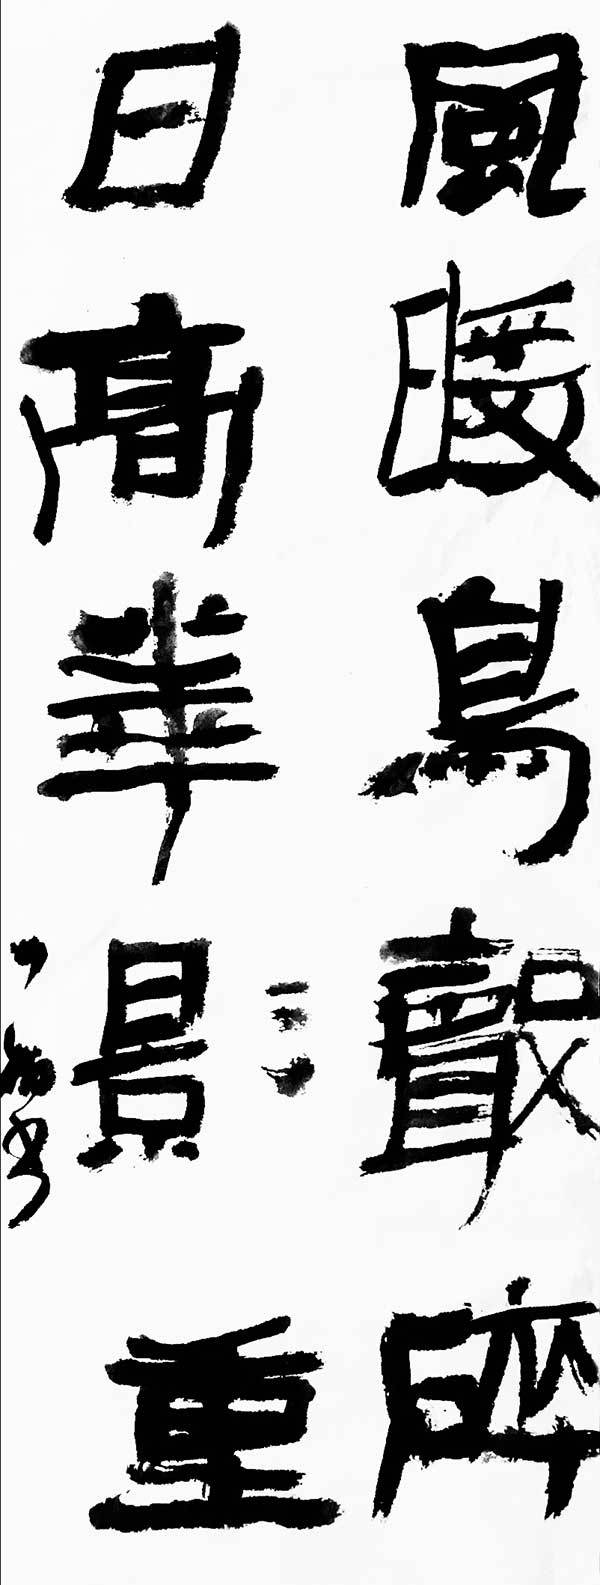 風暖鳥聲碎
日高華景重